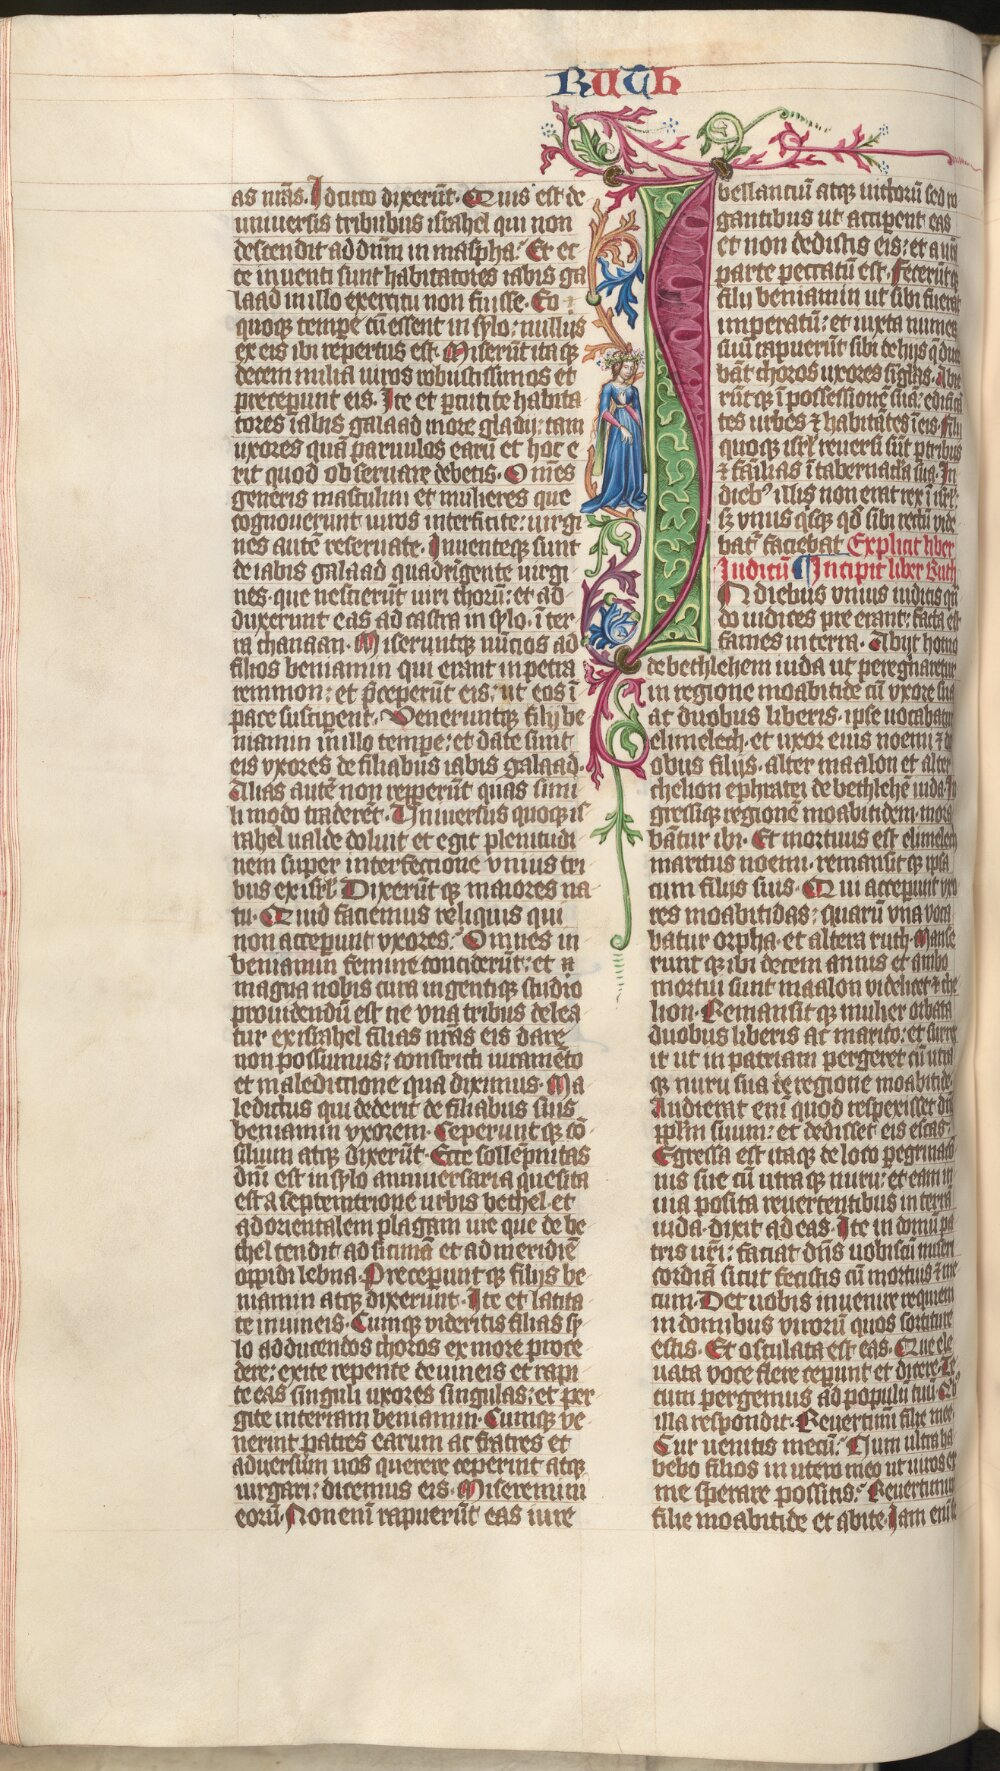 Ruth
as n̄ras. Idcirco dixerūt. Quis est de
universis tribubus israhel qui non
descendit ad dn̄m in maspha. Et ec
ce inventi sunt habitatores iabis ga
laad in illo exercitu non fuisse. Eo
quoqꝫ tempe cū essent in sylo: nullus
ex eis ibi repertus est. Miserūt itaqꝫ
decem milia viros robustissimos et
preceperunt eis. Ite et percutite habita
tores iabis galaad more gladii: tam
uxores quā parvulos earū et hoc e
rit quod observare debetis. Omēs
generis masculini et mulieres que
cognoverunt viros interficite: virgi
nes autē reservate. Inventeqꝫ sunt
de iabis galaad quadringente virgi
nes. que nescierūt viri thorū: et ad
duxerunt eas ad castra in sylo. ī ter
ra chanaan. Miseruntqꝫ nūcios ad
filios beniamin qui erant in petra
remmon: et p̄ceperūt eis. ut eos ī
pace susciperent. Veneruntqꝫ filij be
niamin in illo tempe: et date sunt
eis uxores de filiabus iabis galaad.
Alias autē non repperūt quas simi
li modo traderēt. Universus quoqꝫ is
rahel valde doluit et egit plenitudi
nem super interfectione unius tri
bus ex isrl̄. Dixerūtqꝫ maiores na
tu. Quid faciemus reliquis qui
non acceperunt uxores. Omnes in
beniamin femine conciderūt: et a
magna nobis cura ingentiqꝫ studio
providendū est ne una tribus delea
tur ex israhel filias n̄ras eis dare
non possumus: constricti iuramēto
et maledictione qua diximus. Ma
ledictus qui dederit de filiabus suis
beniamin uxorem. Ceperuntqꝫ cō
silium atqꝫ dixerūt. Ecce sollēpnitas
dn̄i est in sylo anniversaria que sita
est a septemtrione urbis bethel. et
ad orientalem plagam vie que de be
thel tendit ad sicimā et ad meridiē
oppidi lebna. Preceperuntqꝫ filijs be
niamin atqꝫ dixerunt. Ite et latita
te in vineis. Cumqꝫ videritis filias sy
lo ad ducendos choros ex more proce
dere: exite repente de vineis et rapi
te eas singuli uxores singulas: et per
gite in terram beniamin. Cumqꝫ ve
nerint patres earum ac fratres et
adversum vos querere ceperint atqꝫ
iurgari: dicemus eis. Miseremini
eorū. Non enī rapuerūt eas iure
bellantiū atqꝫ victorū sed ro
gantibus ut acciperent eas
et non dedistis eis: et a vr̄a
parte peccatū est. Fecerūtqꝫ
filii beniamin ut sibi fuerat
imperatū: et iuxta numerū
suū rapuerūt sibi de hijs q̄ duce
bāt choros uxores singlas. Abie
rūtqꝫ ī possessionē suā: edificā
tes urbes ⁊ habitātes ī eis. Filij
quoqꝫ isrl̄ reversi sūt p tribus
⁊ fāilias ī tabernacla sua. In
diebꝰ illis non erat rex ī isrl̄:
sꝫ unus qisqꝫ qd̄ sibi rectū vide
bat̄ faciebat Explicit liber
Iudicū Incipit liber Ruth
In diebus unius iudicis qn̄
do iudices pre erant: facta est
fames in terra. Abijt homo
de bethlehem iuda ut peregrinaretur
in regione moabitide cū uxore sua
ac duobus liberis. ipse vocabatur
elimelech. et uxor eius noemi: ⁊ du
obus filijs. alter maalon et alter
chelion ephratei de bethleē iuda. In
gressiqꝫ regionē moabitidem: mora
bātur ibi. Et mortuus est elimelech
maritus noemi. remansitqꝫ ipsa
cum filijs suis. Qui acceperunt uxo
res moabitidas: quarū una voca
batur orpha. et altera ruth. Manse
runtqꝫ ibi decem annis et ambo
mortui sunt maalon videlicet ⁊ che
lion. Remansitqꝫ mulier orbata
duobus liberis ac marito: et surrex
it ut in patriam pergeret cū utra
qꝫ nuru sua de regione moabitide.
Audierat enī quod respexisset dn̄s
pplm̄ suum: et dedisset eis escas.
Egressa est itaqꝫ de loco peregrinacō
nis sue cū utraqꝫ nuru: et eam in
via posita revertentibus in terrā
iuda. dixit ad eas. Ite in domū ma
tris vr̄i: faciat dn̄s vobiscū miseri
cordiā sicut fecistis cū mortuis ⁊ me
cum. Det vobis invenire requiem
in domibus virorū quos sortiture
estis. Et osculata est eas. Que ele
vata voce flere ceperunt et dicere. Te
cum pergemus ad populū tuū. Qbꝰ
illa respondit. Revertimī filie mee.
Cur venitis mecū. Num ultra ha
bebo filios in utero meo ut viros ex
me sperare possitis. Revertimini
filie moabitide et abite. Iam enī